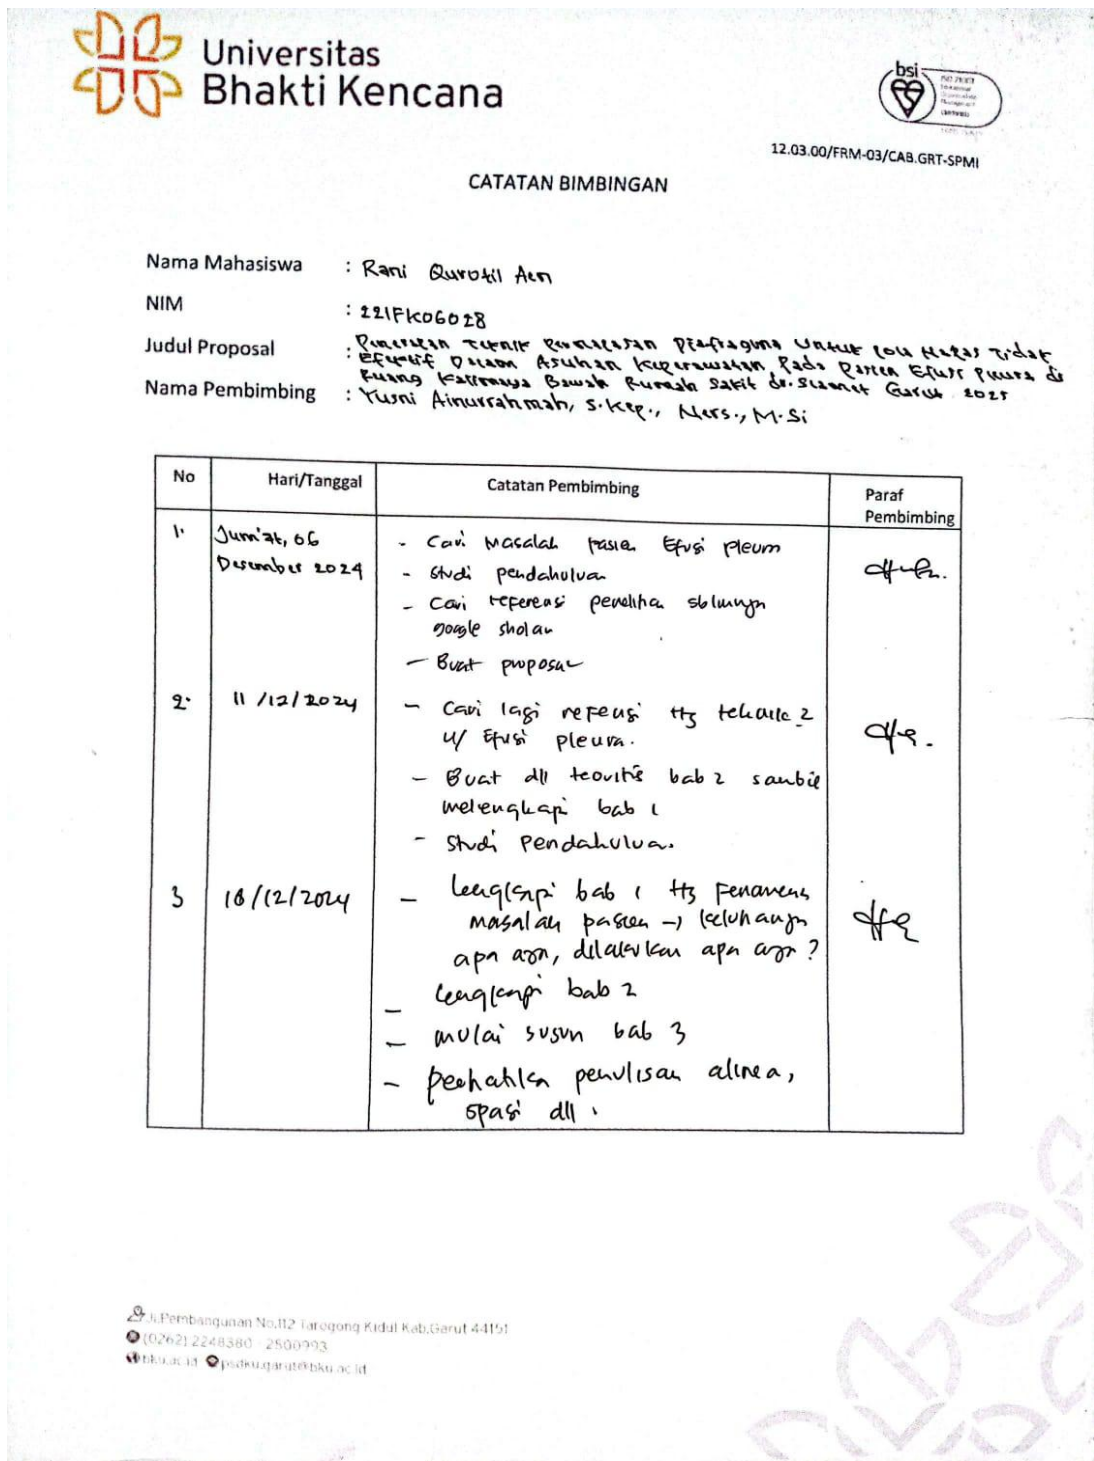 Universitas
Bhakti Kencana
bsi
12.03.00/FRM-03/CAB.GRT-SPMI
CATATAN BIMBINGAN
Nama Mahasiswa : Rani Qurotil Aen
NIM : 221FK06028
Judul Proposal : Penerapan Teknik Pernapasan Diafragma Untuk Pola Napas Tidak
Efektif Dalam Asuhan Keperawatan Pada Pasien Efusi Pleura di
Ruang Kalimaya Bawah Rumah Sakit dr. Slamet Garut 2025
Nama Pembimbing : Yusni Ainurrahmah, S.Kep., Ners., M.Si
No Hari/Tanggal Catatan Pembimbing Paraf
Pembimbing
1. Jum'at, 06 - Cari Masalah pasien Efusi pleura
Desember 2024 - Studi pendahuluan
- Cari referensi penelitian sblmnya
google sholar
- Buat proposal
2. 11/12/2024 - Cari lagi refensi ttg tehnik2
u/ Efusi pleura.
- Buat dll teoritis bab 2 sambil
melengkapi bab 1
- Studi Pendahuluan.
3 18/12/2024 - lengkapi bab 1 ttg Fenomena
masalah pasien → keluhannya
apa aja, dilakukan apa aja?
- lengkapi bab 2
- mulai susun bab 3
- perhatikan penulisan alinea,
spasi dll.
Jl.Pembangunan No.112 Tarogong Kidul Kab.Garut 44151
(0262) 2248380 - 2500993
bku.ac.id psdku.garut@bku.ac.id